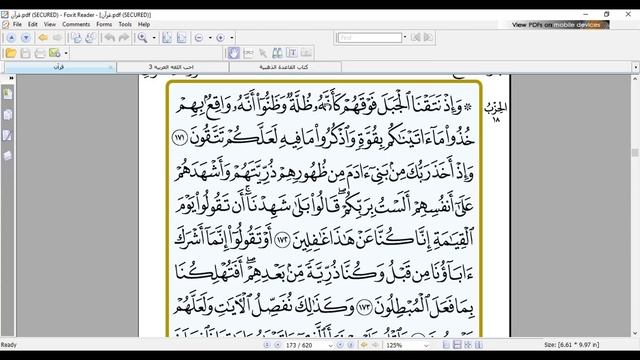 قرآن.pdf (SECURED) - Foxit Reader - [قرآن.pdf (SECURED)]
File Edit View Comments Forms Tools Help
View PDFs on mobile devices
Find
قرآن
احب اللغه العربيه 3
كتاب القاعدة الذهبية
۞ وَإِذْ نَتَقْنَا الْجَبَلَ فَوْقَهُمْ كَأَنَّهُ ظُلَّةٌ وَظَنُّوا أَنَّهُ وَاقِعٌ بِهِمْ
الحِزْبُ ١٨
خُذُوا مَا ءَاتَيْنَاكُم بِقُوَّةٍ وَاذْكُرُوا مَا فِيهِ لَعَلَّكُمْ تَتَّقُونَ ١٧١
وَإِذْ أَخَذَ رَبُّكَ مِنْ بَنِي ءَادَمَ مِن ظُهُورِهِمْ ذُرِّيَّتَهُمْ وَأَشْهَدَهُمْ
عَلَى أَنفُسِهِمْ أَلَسْتُ بِرَبِّكُمْ قَالُوا بَلَى شَهِدْنَا أَن تَقُولُوا يَوْمَ
الْقِيَامَةِ إِنَّا كُنَّا عَنْ هَذَا غَافِلِينَ ١٧٢ أَوْ تَقُولُوا إِنَّمَا أَشْرَكَ
ءَابَاؤُنَا مِن قَبْلُ وَكُنَّا ذُرِّيَّةً مِّنْ بَعْدِهِمْ أَفَتُهْلِكُنَا
بِمَا فَعَلَ الْمُبْطِلُونَ ١٧٣ وَكَذَلِكَ نُفَصِّلُ الْآيَاتِ وَلَعَلَّهُمْ
Ready
173 / 620
125%
Size: [6.61 * 9.97 in]